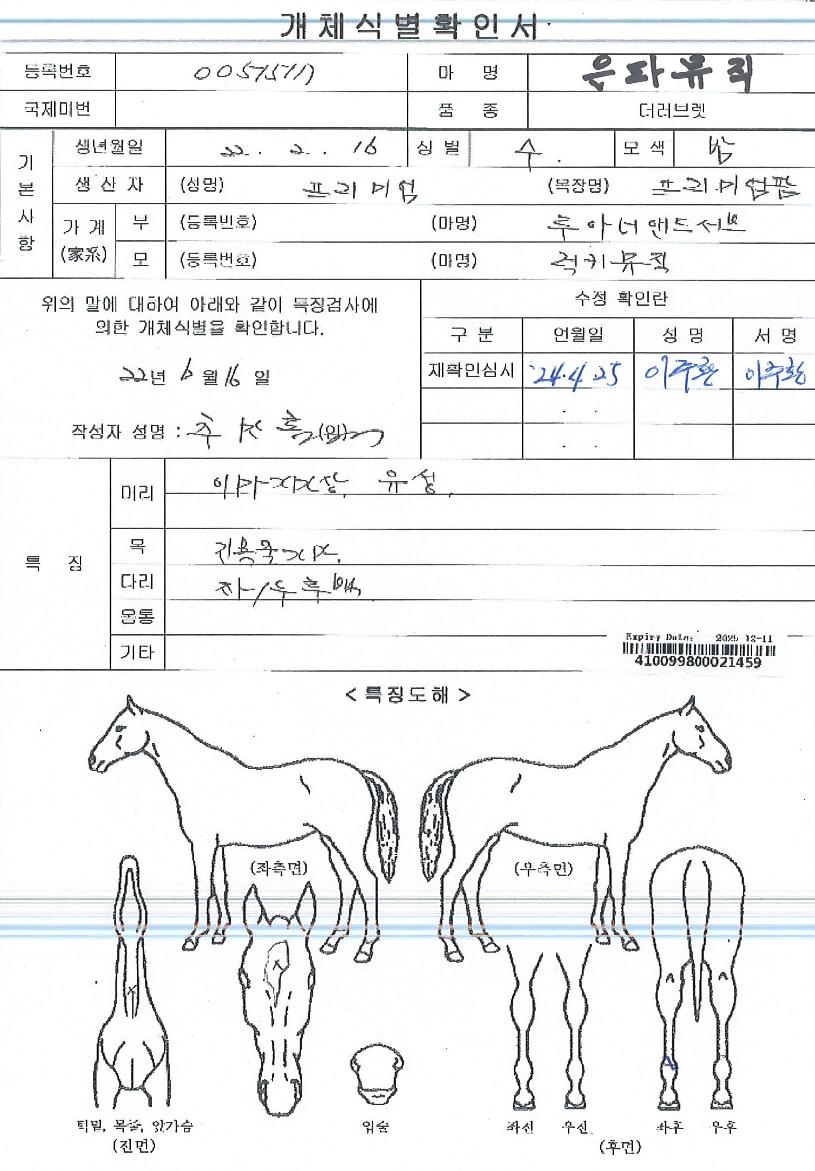 개체식별확인서
등록번호 마 명 은파뮤직
국제미번 품 종 더러브렛
기본사항
생년월일 22. 2. 16 성별 수. 모색 밤
생산자 (성명) 프리미엄 (목장명) 프리미엄팜
가계(家系) 부 (등록번호) (마명) 투아너앤드서브
모 (등록번호) (마명) 럭키뮤직
위의 말에 대하여 아래와 같이 특징검사에
의한 개체식별을 확인합니다.
22년 6월 16일
작성자 성명 : (인)
수정 확인란
구 분 연월일 성 명 서 명
재확인심시 '24.4.25 이주환 이주환
특 징
머리 유성.
목
다리
몸통
기타
Expiry Date: 2025-12-11
410099800021459
< 특징도해 >
(좌측면) (우측면)
턱밑, 목줄, 앞가슴 입술 좌전 우전 좌후 우후
(전면) (후면)